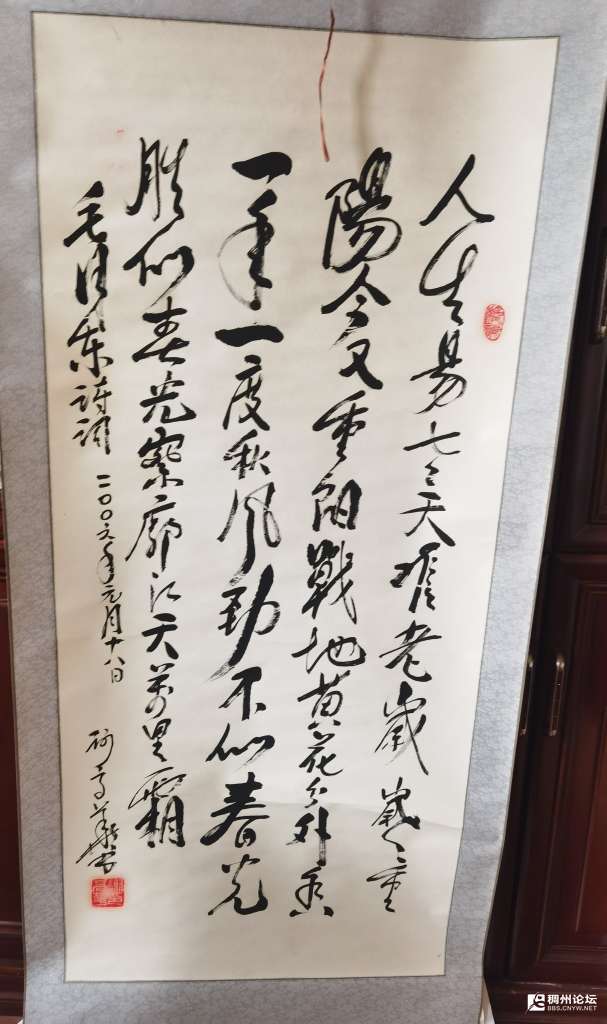 人生易老天难老歲歲重
陽今又重阳戰地黄花分外香
一年一度秋风劲不似春光
胜似春光寥廓江天萬里霜
毛泽东诗词 二〇〇六年元月十八日
稠州论坛
BBS.CNYW.NET